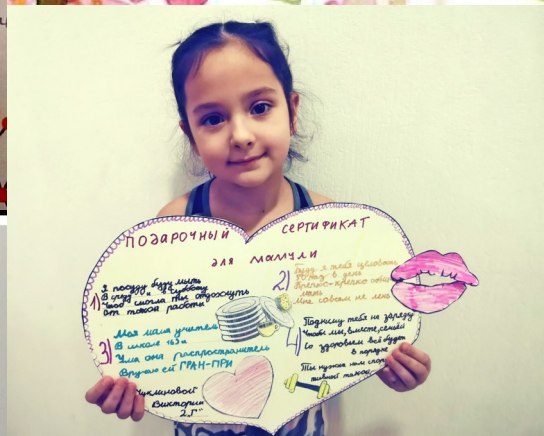 ПОДАРОЧНЫЙ СЕРТИФИКАТ
для мамули
1) Я посуду буду мыть
В среду, и в субботу
Чтоб смогла ты отдохнуть
от такой работы
2) Буду я тебя целовать
30 раз в день
Крепко-крепко обнимать
Мне совсем не лень
3) Моя мама учитель
В школе №31
Ума она распространитель
Вручаю ей ГРАН-ПРИ
4) Подниму тебя на зарядку
Чтобы мы, вместе, семьёй
Со здоровьем всё будет
в порядке
Ты нужна нам спор
тивной такой
Чуклиновой
Виктории
2 "Г"